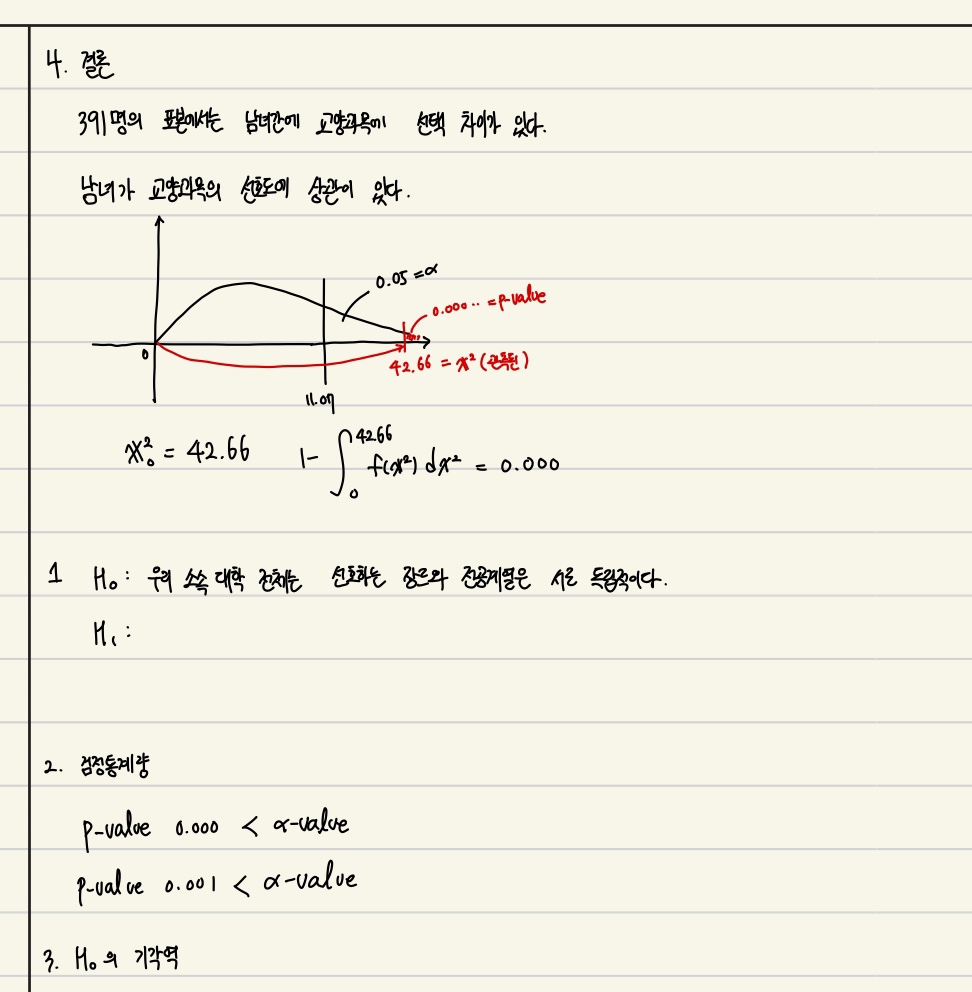 4. 결론
391명의 표본에서는 남녀간에 교양과목에 선택 차이가 있다.
남녀가 교양과목의 선호도에 상관이 있다.
0.05 = α
0.000·· = p-value
0
42.66 = x² (관측된)
11.07
x²₀ = 42.66 1- ∫₀^42.66 f(x²) dx² = 0.000
1 H₀ : 우리 소속 대학 전체는 선호하는 장르와 전공계열은 서로 독립적이다.
H₁ :
2. 검정통계량
p-value 0.000 < α-value
p-value 0.001 < α-value
3. H₀의 기각역